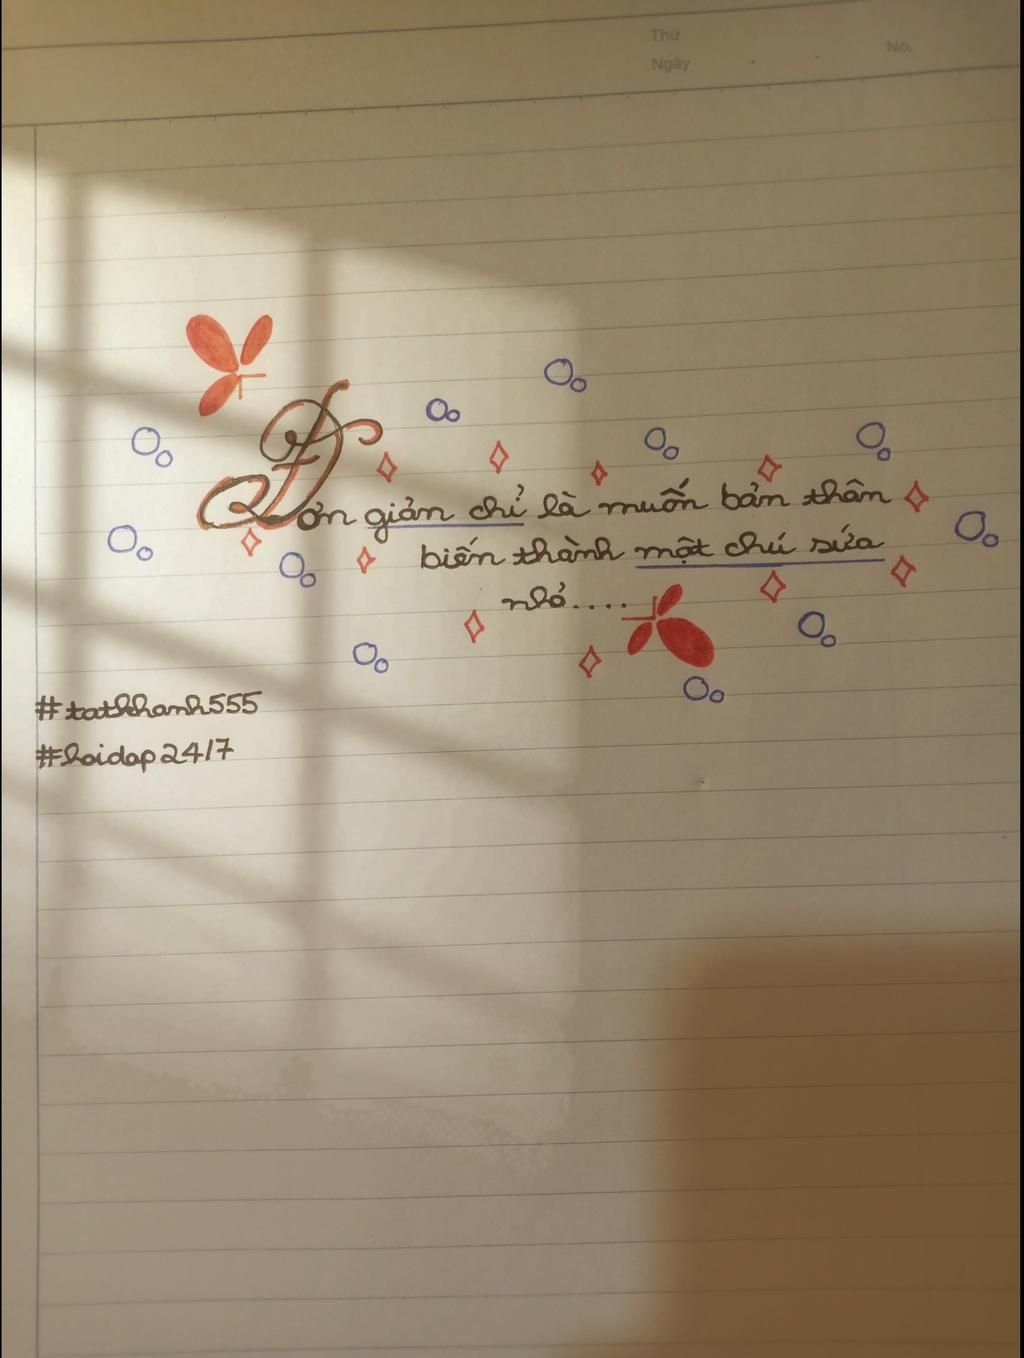 Thứ
Ngày . . No.
Đơn giản chỉ là muốn bản thân
biến thành một chú sứa
nhỏ....
#tatkhanh555
#hoidap24/7